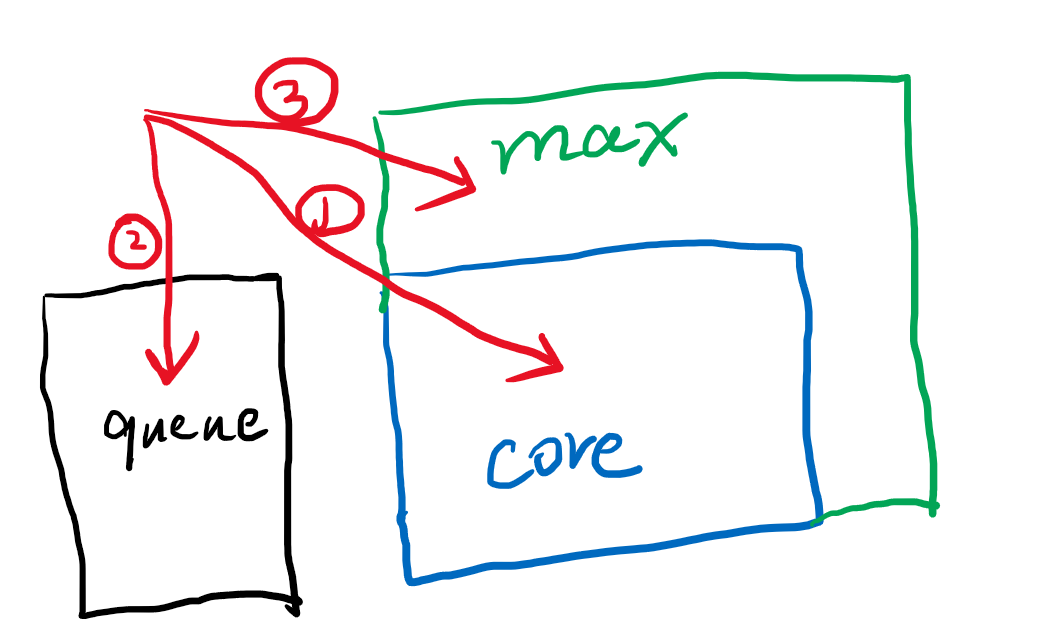 3
max
1
2
queue
core